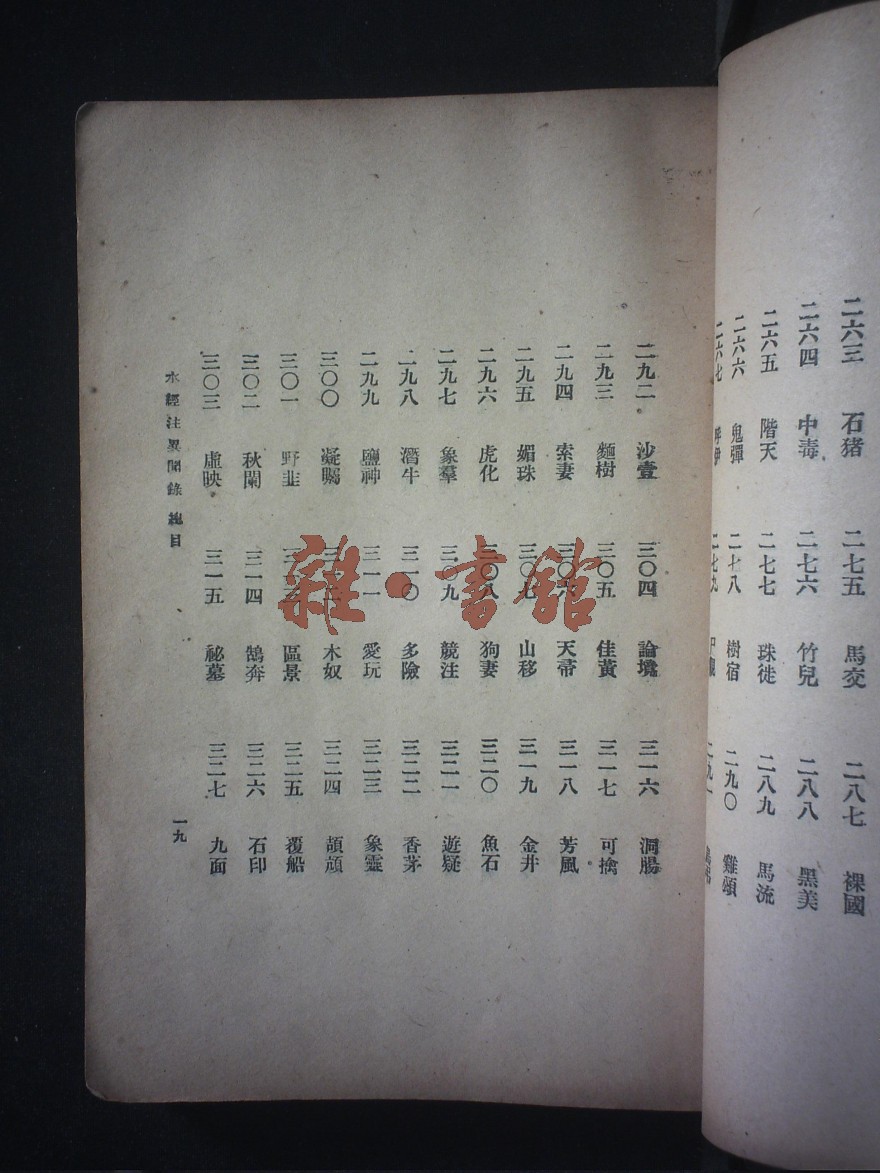 二六三 石猪 二七五 馬交 二八七 裸國
二六四 中毒 二七六 竹兒 二八八 黑美
二六五 階天 二七七 珠徙 二八九 馬流
二六六 鬼彈 二七八 樹宿 二九〇 雞頭
二六七 二七九
二九二 沙壹 三〇四 論墳 三一六 洞腸
二九三 麵樹 三〇五 佳黃 三一七 可擒
二九四 索妻 三〇六 天帚 三一八 芳風
二九五 媚珠 三〇七 山移 三一九 金井
二九六 虎化 三〇八 狗妻 三二〇 魚石
二九七 象羣 三〇九 競注 三二一 遊疑
二九八 潛牛 三一〇 多險 三二二 香茅
二九九 鹽神 三一一 愛玩 三二三 象靈
三〇〇 凝矚 木奴 三二四 頡頏
三〇一 野韭 區景 三二五 覆船
三〇二 秋闌 三一四 鵠奔 三二六 石印
三〇三 虛映 三一五 祕墓 三二七 九面
水經注異聞錄 總目
一九
雜·書館